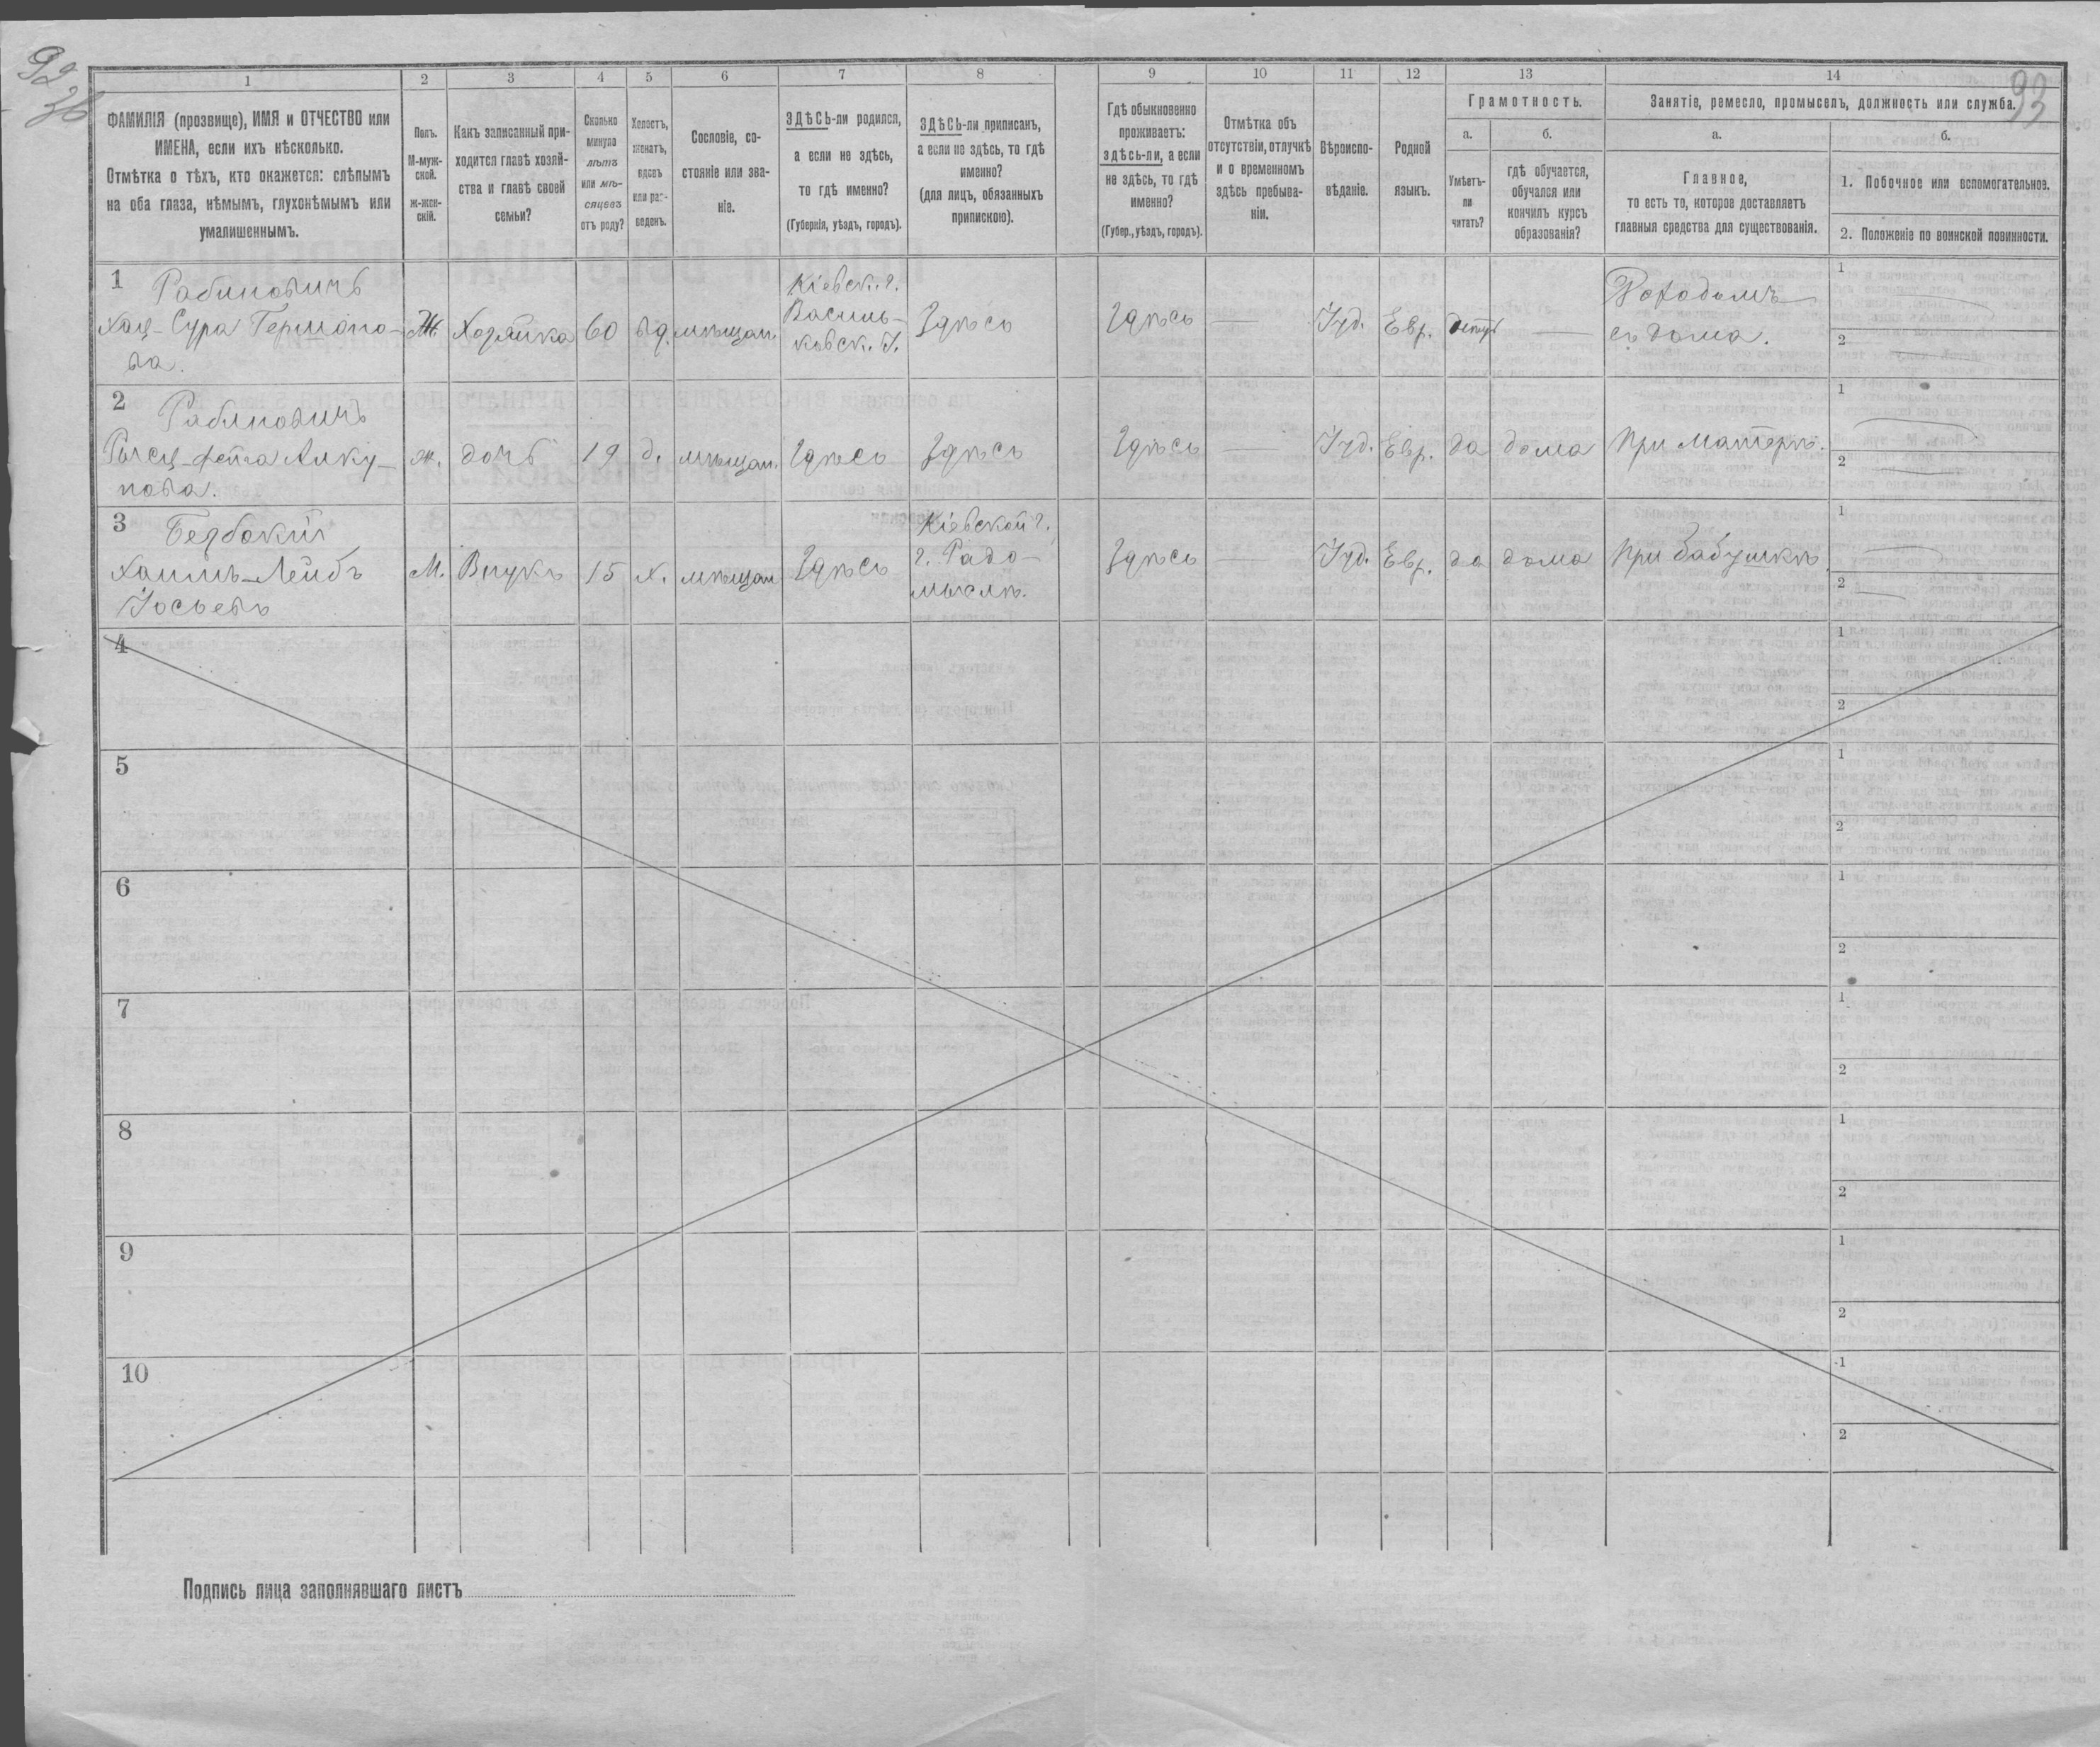 92
зв
93
1
2
3
4
5
6
7
8
9
10
11
12
13
14
ФАМИЛІЯ (прозвище), ИМЯ и ОТЧЕСТВО или
ИМЕНА, если ихъ нѣсколько.
Отмѣтка о тѣхъ, кто окажется: слѣпымъ
на оба глаза, нѣмымъ, глухонѣмымъ или
умалишеннымъ.
Полъ.
М-муж-
ской.
ж-жен-
скій.
Какъ записанный при-
ходится главѣ хозяй-
ства и главѣ своей
семьи?
Сколько
минуло
лѣтъ
или мѣ-
сяцевъ
отъ роду?
Холостъ,
женатъ,
вдовъ
или раз-
веденъ.
Сословіе, со-
стояніе или зва-
ніе.
ЗДѢСЬ-ли родился,
а если не здѣсь,
то гдѣ именно?
(Губернія, уѣздъ, городъ).
ЗДѢСЬ-ли приписанъ,
а если не здѣсь, то гдѣ
именно?
(для лицъ, обязанныхъ
припискою).
Гдѣ обыкновенно
проживаетъ:
здѣсь-ли, а если
не здѣсь, то гдѣ
именно?
(Губер., уѣздъ, городъ).
Отмѣтка объ
отсутствіи, отлучкѣ
и о временномъ
здѣсь пребыва-
ніи.
Вѣроиспо-
вѣданіе.
Родной
языкъ.
Грамотность.
а.
б.
Умѣетъ-
ли
читать?
гдѣ обучается,
обучался или
кончилъ курсъ
образованія?
Занятіе, ремесло, промыселъ, должность или служба.
а.
б.
Главное,
то есть то, которое доставляетъ
главныя средства для существованія.
1. Побочное или вспомогательное.
2. Положеніе по воинской повинности.
1
Рабиновичъ
Сура
ва.
Ж.
Хозяйка
60
вд.
мѣщан.
Кіевск. г.
Василь-
ковск. У.
Здѣсь
Здѣсь
—
Іуд.
Евр.
—
съ дома.
1
2
2
Рабиновичъ
нова.
ж.
дочь
19
д.
мѣщан.
Здѣсь
Здѣсь
Здѣсь
—
Іуд.
Евр.
да
дома
При матери.
1
2
3
Хаимъ-Лейбъ
Іосьевъ
М.
Внукъ
15
х.
мѣщан
Здѣсь
Кіевской г.
г. Радо-
мыслѣ.
Здѣсь
—
Іуд.
Евр.
да
дома
При бабушкѣ
1
2
4
1
2
5
1
2
6
1
2
7
1
2
8
1
2
9
1
2
10
1
2
Подпись лица заполнявшаго листъ